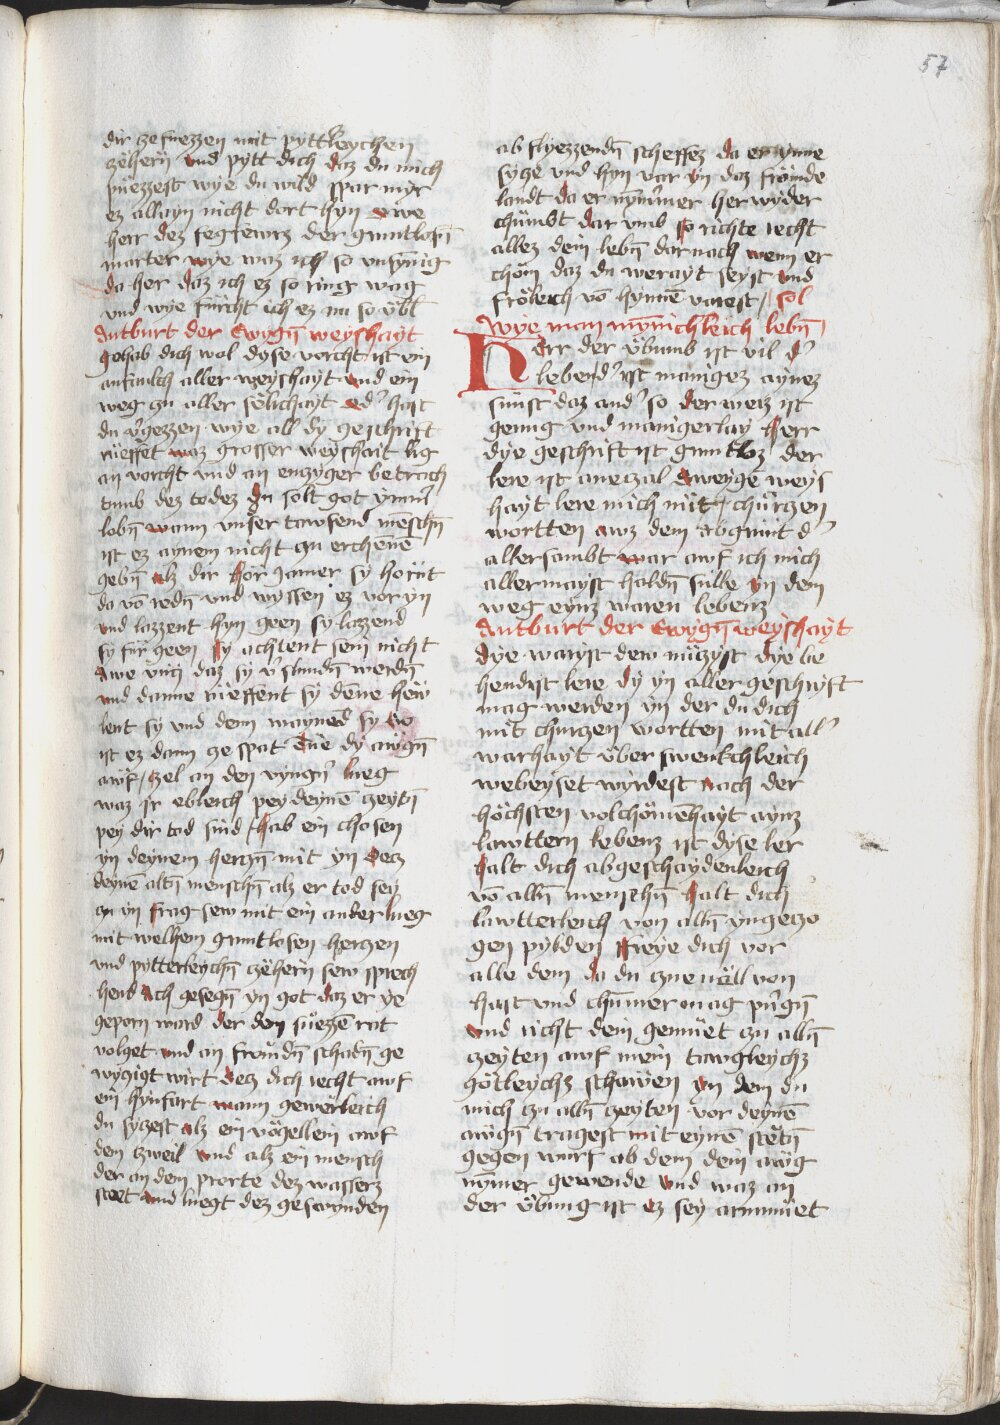 57
dir ze fuezzen mit pyttleychen
zëhern vnd pytt dich daz du mich
puezzest wye du wild spar myr
ez allayn nicht dort hyn awe
herr dez fegfewrs der gruntlosn̄
marter wye waz ich so vnsÿnnig
da her daz ich ez so ring wag
vnd wye fürcht ich ez nu so übl
Antburt der Ewygn̄ weyshayt
gehab dich wol dyse vorcht ist ein
anfankch aller weyshayt vnd ein
weg zu aller sëlichayt od' hast
du v'gezzen wye all dy geschrift
rüeffet waz grosser weyshait lig
an vorcht vnd an emzyger betrach
tumb dez todez du solt got ymm'
lobn̄ wann vnser tawsend menschn̄
ist ez aynem nicht zu erchenē
gebn̄ alz dir hör jamer sy hörnt
da vō redn̄ vnd wyssen ez vor yn
vnd lazzent hyn geen sy lazzend
sy für geen sy achtent sein nicht
Awe vncz daz sy v'slundn̄ werdn̄
vnd danne rueffent sy dēne hëw
lent sy vnd denn waynēd sy so
ist ez dann ze spat Tue dy awgn̄
awf / zel an den vyngn' lueg
waz jr ebleich pey deynē zeytn̄
pey dir tod sind / hab ein chosen
yn deynem herczn̄ mit yn Secz
deynē altn̄ menschn̄ alz er tod sey
zu yn frag sew mit ein ander lueg
mit welhem gruntlosen herczen
vnd pytterleychn̄ zëhern sew sprech
hend Ach gesegn̄ yn got daz er ye
geporn ward der dem süezzē rat
volget vnd an fromdn̄ schadn̄ ge
wyczigt wirt Secz dich recht awf
ein hynfart wann gewërleich
du syczest alz ein vögellein awf
dem zweil vnd alz ein mensch
der an dem prorte dez wasserz
steet vnd luegt dez geswynden
ab flyezzendn̄ scheffez da er ynne
sycze vnd hyn var yn daz frömde
landt da er nymmer herwyder
chümbt dar vmb so richte recht
allez dein lebn̄ darnach wenn er
chöm daz du werayt seyst vnd
frölich vō hynnē varest / sol
Wye man mynnichleich lebn̄
Herr der übumb ist vil d'
lebend' ist manigez aynez
sünst daz and' so der weiz ist
genug vnd manigerlay herr
dye geschrift ist gruntloz der
lere ist anezal Eweyge weys
hayt lere mich mit churczen
wortten awz dem abgrunt d'
allersambt war awf ich mich
allermayst haldn̄ sülle yn dem
weg eynz waren lebenz
Antburt der Ewygn̄ weyshayt
Dye waryst dew nüczyst dye be
hendist lere dy yn aller geschryft
mag werden yn der du dich
mit churczen wortten mit all'
warhayt überswenkchleich
webeyset wyrdest nach der
höchsten volchömēhayt aynz
lawttern lebenz ist dyse ler
halt dich abgeschaydenleich
vō alln̄ menschn̄ halt dich
lawtterleich von alln̄ yngeczo
gen pylden Freye dich vor
alle dem da du zue uäll von
hast vnd chummer mag pringn̄
vnd richt dein gemüet zu alln̄
zeyten awf mein tawgleychz
götleychz schawen yn dem du
mich zu alln̄ zeyten vor deynē
awgn̄ tragest mit eynē stëtn̄
gegen wurf ab dem dein awg
nymer gewende vnd waz an
der übung ist ez sey armmüet